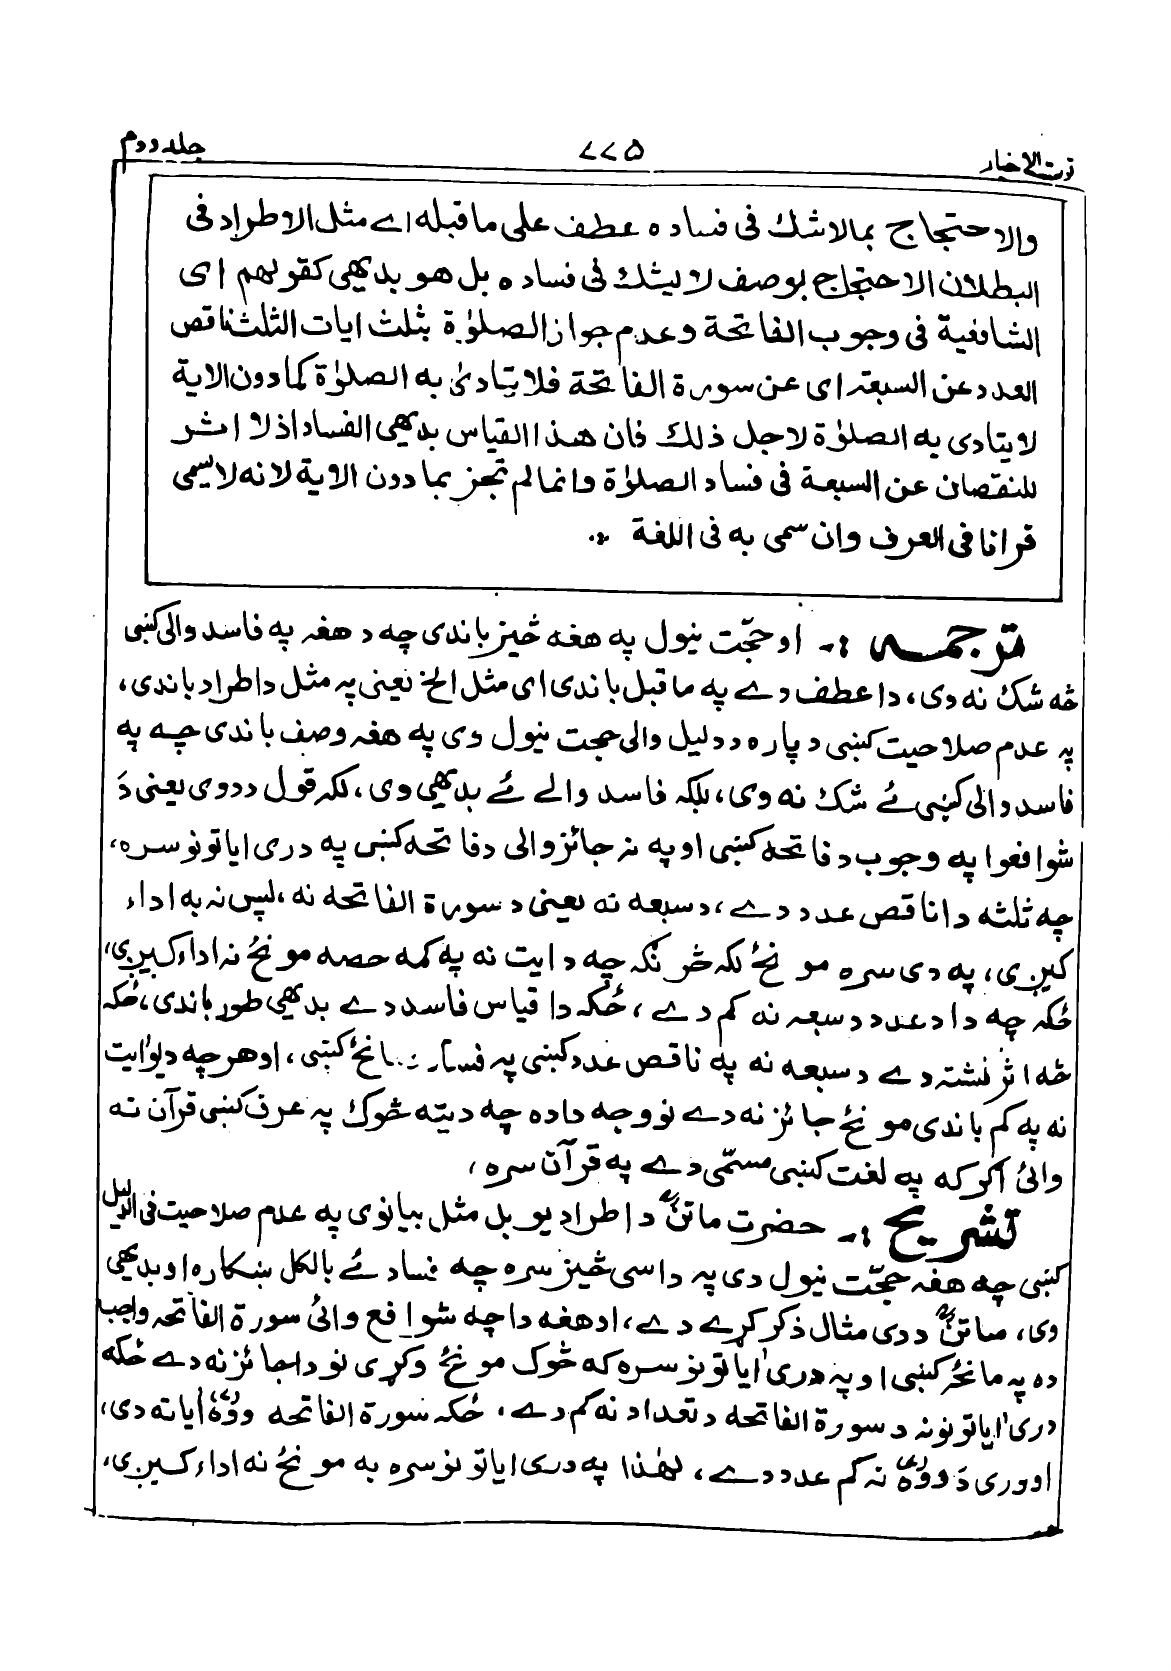 قوت الاخیار ۷۷۵ جلد دوم
والاحتجاج بمالاشك فی فساده عطف علی ماقبله اے مثل الاطراد فی
البطلان الاحتجاج بوصف لایشك فی فساده بل هو بدیهی کقولهم ای
الشافعیة فی وجوب الفاتحة وعدم جواز الصلوٰة بثلث ایات الثلث ناقص
العدد عن السبعة ای عن سورة الفاتحة فلا یتادیٰ به الصلوٰة کما دون الایة
لایتادی به الصلوٰة لاجل ذلك فان هذا القیاس بدیهی الفساد اذ لا اثر
للنقصان عن السبعة فی فساد الصلوٰة وانما لم تجز بما دون الایة لانه لایسمی
قرانا فی العرف وان سمی به فی اللغة ؞
ترجمه :- او حجّت نیول په هغه څیز باندی چه د هغه په فاسد والی کښی
څه شک نه وی، دا عطف دے په ماقبل باندی ای مثل الخ یعنی په مثل د اطراد باندی،
په عدم صلاحیت کښی د پاره د دلیل والی حجت نیول وی په هغه وصف باندی چه په
فاسد والی کښی ئے شک نه وی، بلکه فاسد والے ئے بدیهی وی، لکه قول د دوی یعنی دَ
شوافعوا په وجوب د فاتحه کښی او په نه جائز والی د فاتحه کښی په دری ایاتونو سره،
چه ثلثه دا ناقص عدد دے، د سبعه نه یعنی د سورة الفاتحه نه، پس نه به اداء
کیږی، په دی سره مونځ لکه څرنګه چه د ایت نه په کمه حصه مونځ نه اداء کیږی،
ځکه چه دا د عدد د سبعه نه کم دے، ځکه دا قیاس فاسد دے بدیهی طور باندی، ځکه
څه اثر نشته دے د سبعه نه په ناقص عدد کښی په فساد د مانځهٔ کښی، او هر چه د یوایت
نه په کم باندی مونځ جائز نه دے نو وجه داده چه دیته څوک په عرف کښی قرآن نه
وائی اګر که په لغت کښی مسمّی دے په قرآن سره،
تشریح :- حضرت ماتنؒ د اطراد یو بل مثل بیانوی په عدم صلاحیت فی الدلیل
کښی چه هغه حجّت نیول دی په داسی څیز سره چه فساد ئے بالکل ښکاره او بدیهی
وی، ماتنؒ د دی مثال ذکر کړے دے، اد هغه دا چه شوافع وائی سورة الفاتحه واجب
ده په مانځهٔ کښی او په دری ایاتونو سره که څوک مونځ وکړی نو دا جائز نه دے ځکه
دری ایاتونونه د سورة الفاتحه د تعداد نه کم دے، ځکه سورة الفاتحه اوه ایاته دی،
او دری دَ اووه نه کم عدد دے، لهٰذا په دری ایاتونو سره به مونځ نه اداء کیږی،